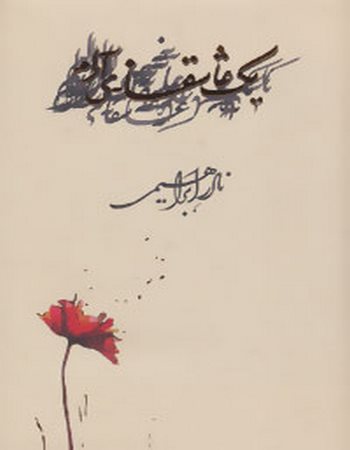 یک عاشقانه‌ی آرام
نادر ابراهیمی